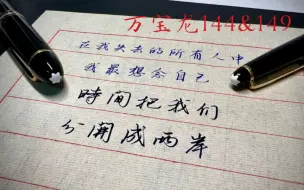 万宝龙144&149
在我失去的所有人中
我最想念自己
時間把我们
分開成两岸